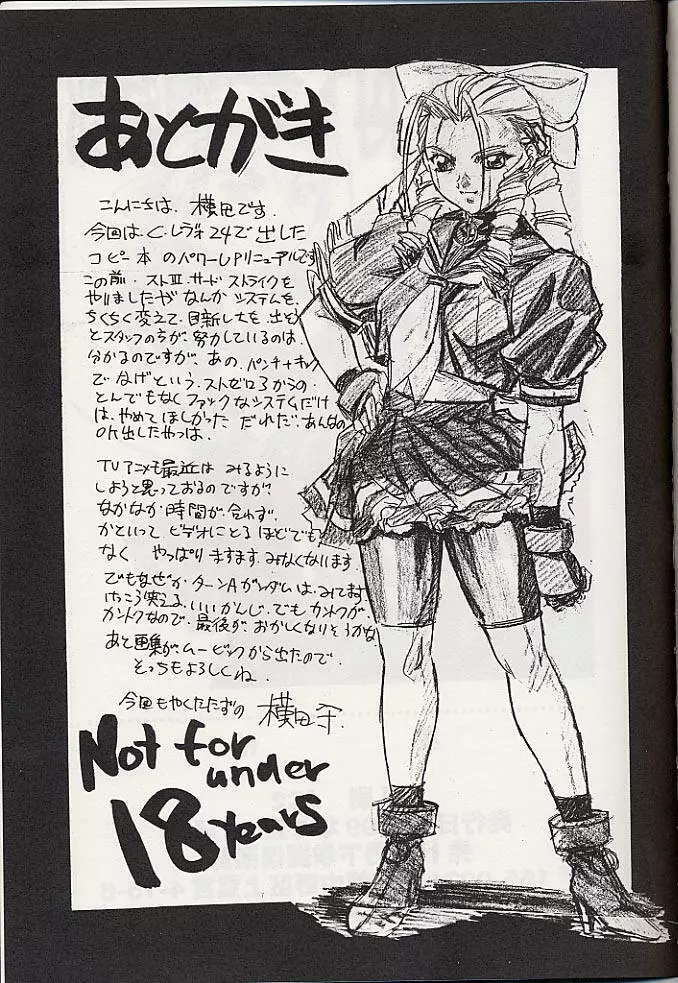 あとがき
こんにちは、横田です。
今回はC.レヴォ24で出した
コピー本のパワーUPリニューアルです
この前、ストⅢ.サードストライクを
やりましたがなんかシステムを、
ちくちく変えて、目新しさを、出そう
とスタッフの方が、努力しているのは、
分かるのですが、あの、パンチ+キック
でなげという、ストゼロ3からの、
とんでもなくファックなシステムだけ
は、やめてほしかった だれだ、あんなの
OK出したやつは、
TVアニメも最近は みるように
しようと思っておるのですが、
なかなか時間が、合わず、
かといって ビデオにとるほどでも
なく やっぱり ますます、みなくなります
でもなぜか ターンAガンダムは、みてます
けっこう笑える、いいかんじ、でも カントクが、
カントクなので、最後が、おかしくなりそうかな
あと画集が、ムービックから出たので、
そっちもよろしくね、
今回もやくたたずの 横田守.
Not for
under
18 years